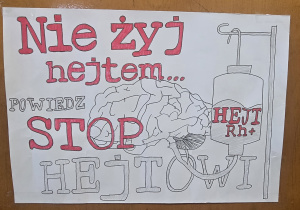 Nie żyj
hejtem...
POWIEDZ
STOP
HEJTOWI
HEJT
Rh+